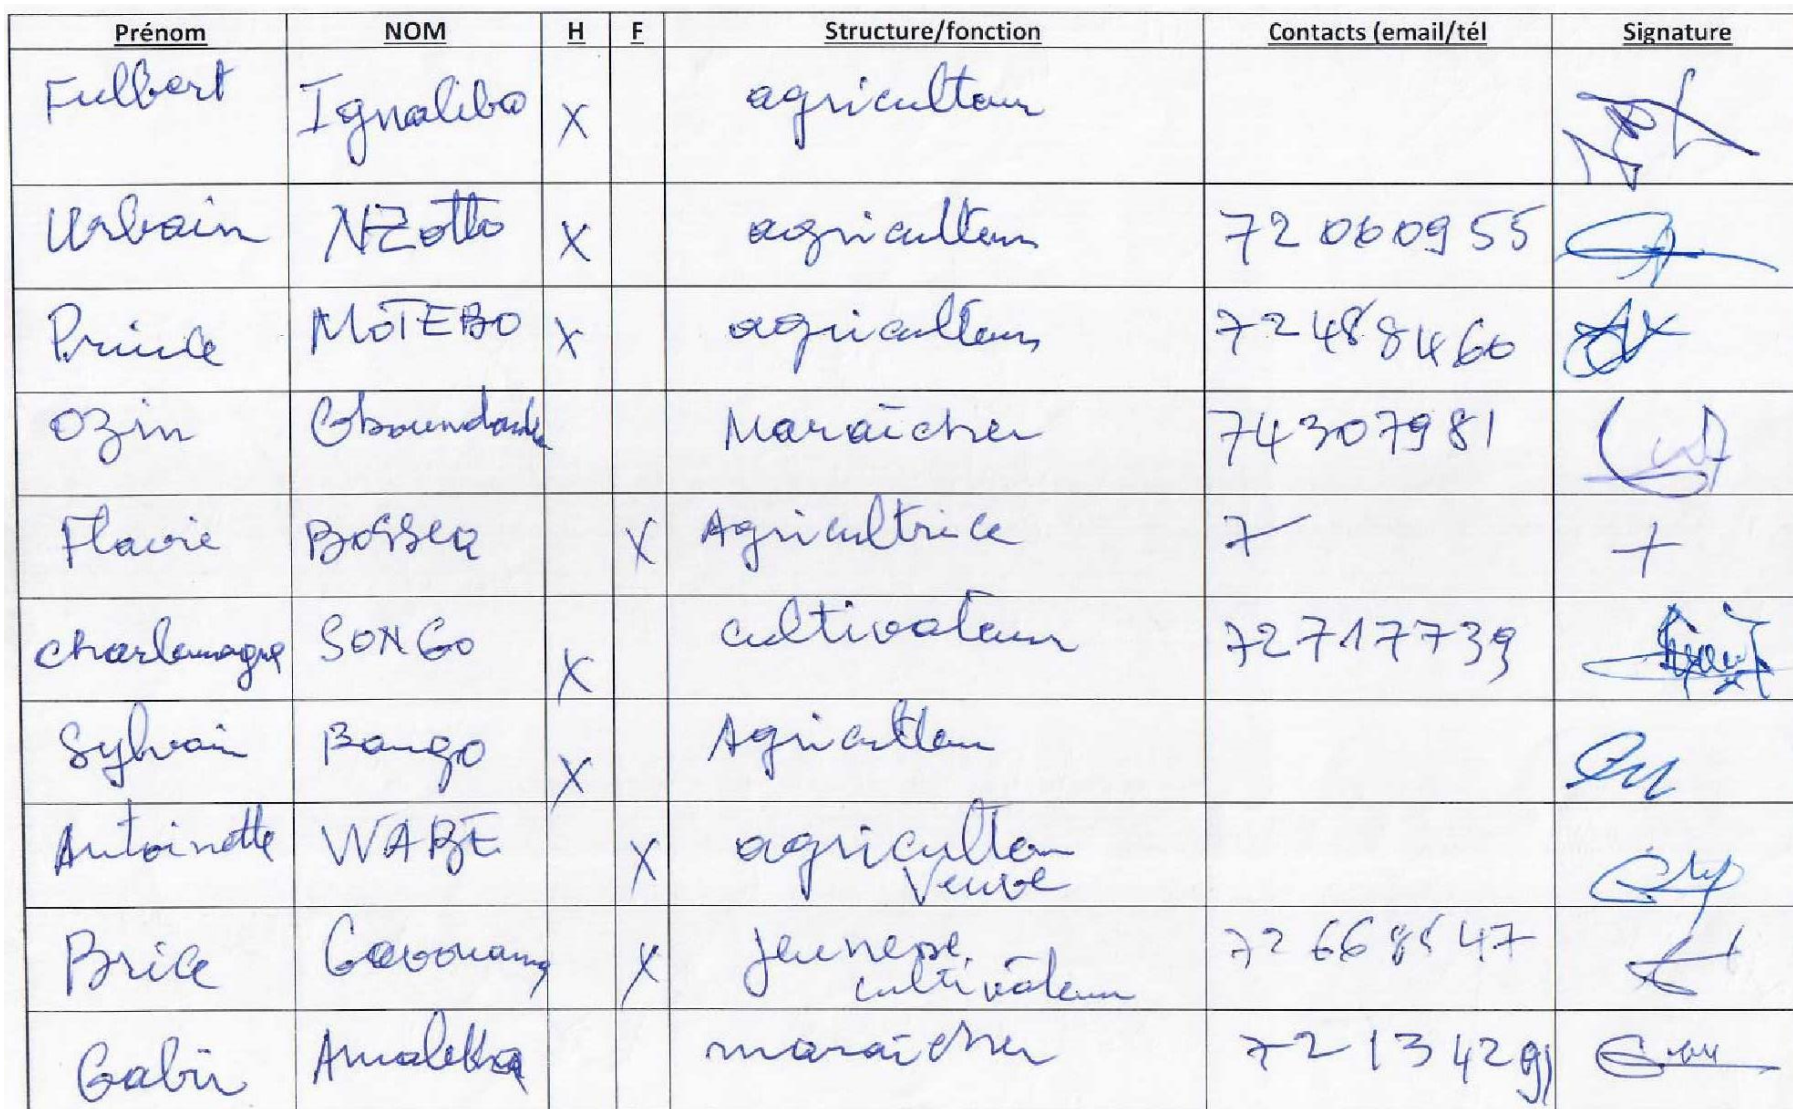 Prénom NOM H F Structure/fonction Contacts (email/tél Signature
Fulbert Ignaliba X agriculteur
Urbain NZotto X agriculteur 72 060955
Prince MOTEBO X agriculteur 72488460
Ozin Maraîcher 74307981
Flavie X Agricultrice 7 +
Charlemagne SONGO X cultivateur 72717739
Sylvain Bango X Agriculteur
Antoinette WABE X agriculteur
Veuve
Brice X Jeunesse
cultivateur
maraîcher 72134291